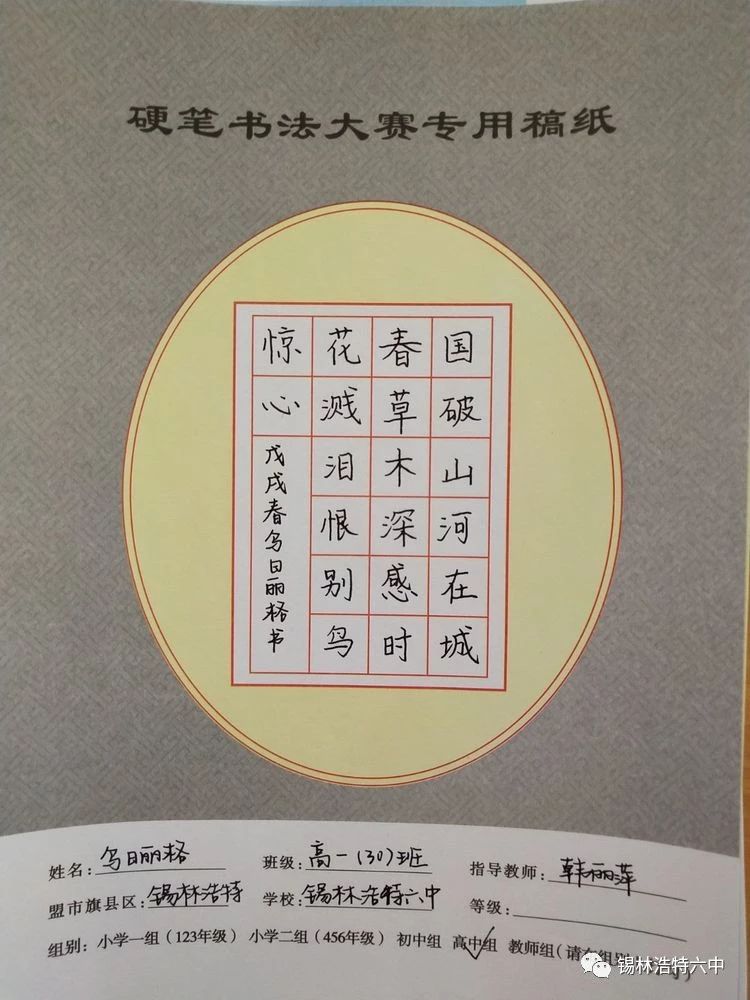 硬笔书法大赛专用稿纸
国破山河在城
春草木深感时
花溅泪恨别鸟
惊心
戊戌春乌日丽格书
姓名:乌日丽格 班级:高一(30)班 指导教师:韩丽萍
盟市旗县区:锡林浩特 学校:锡林浩特六中 等级:
组别:小学一组(123年级) 小学二组(456年级) 初中组 高中组 ✓ 教师组(请在组别
锡林浩特六中